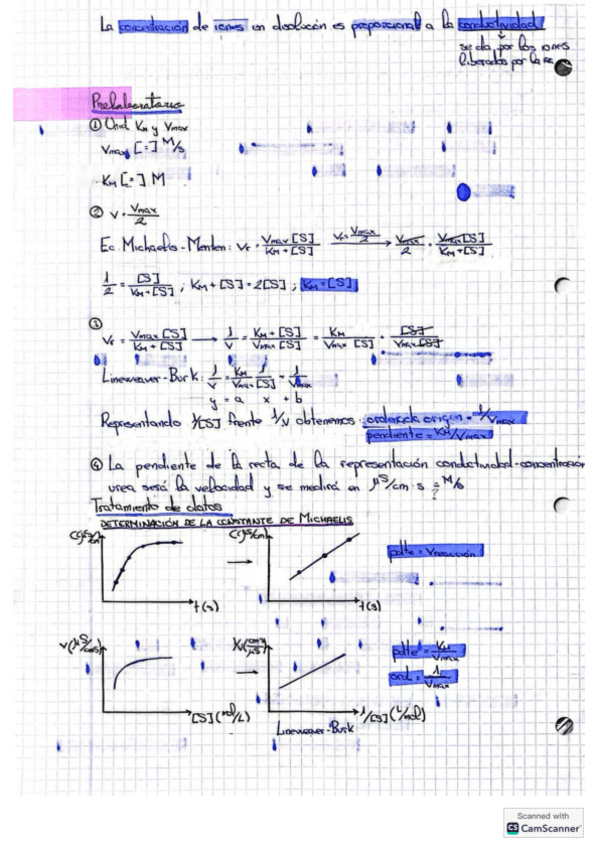 La concentración de iones en disolución es proporcional a la conductividad
↓
se da por los iones
liberados por la
Prelaboratorio
① Unid KM y Vmax
Vmax [=] M/s
KM [=] M
② v = Vmax/2
Ec. Michaelis-Menten: Vr = Vmax [S]/KM + [S] Vr = Vmax/2 → Vmax/2 = Vmax[S]/KM + [S]
1/2 = [S]/KM + [S] ; KM + [S] = 2[S] ; KM = [S]
③
Vr = Vmax [S]/KM + [S] → 1/V = KM + [S]/Vmax [S] = KM/Vmax [S] + [S]/Vmax [S]
Lineweaver-Burk: 1/V = KM/Vmax 1/[S] + 1/Vmax
y = a x + b
Representando 1/[S] frente 1/V obtenemos: ordenada origen = 1/Vmax
pendiente = KM/Vmax
④ La pendiente de la recta de la representación conductividad-concentración
urea será la velocidad y se medirá en μS/cm·s = M/s
?
Tratamiento de datos
DETERMINACIÓN DE LA CONSTANTE DE MICHAELIS
C(μS/cm) → C(μS/cm) pdte = Vreacción
t(s) t(s)
V(μS/cm·s) → 1/V(cm·s/μS) pdte = KM/Vmax
ord = 1/Vmax
[S](mol/L) 1/[S](L/mol)
Lineweaver-Burk
Scanned with
CS CamScanner